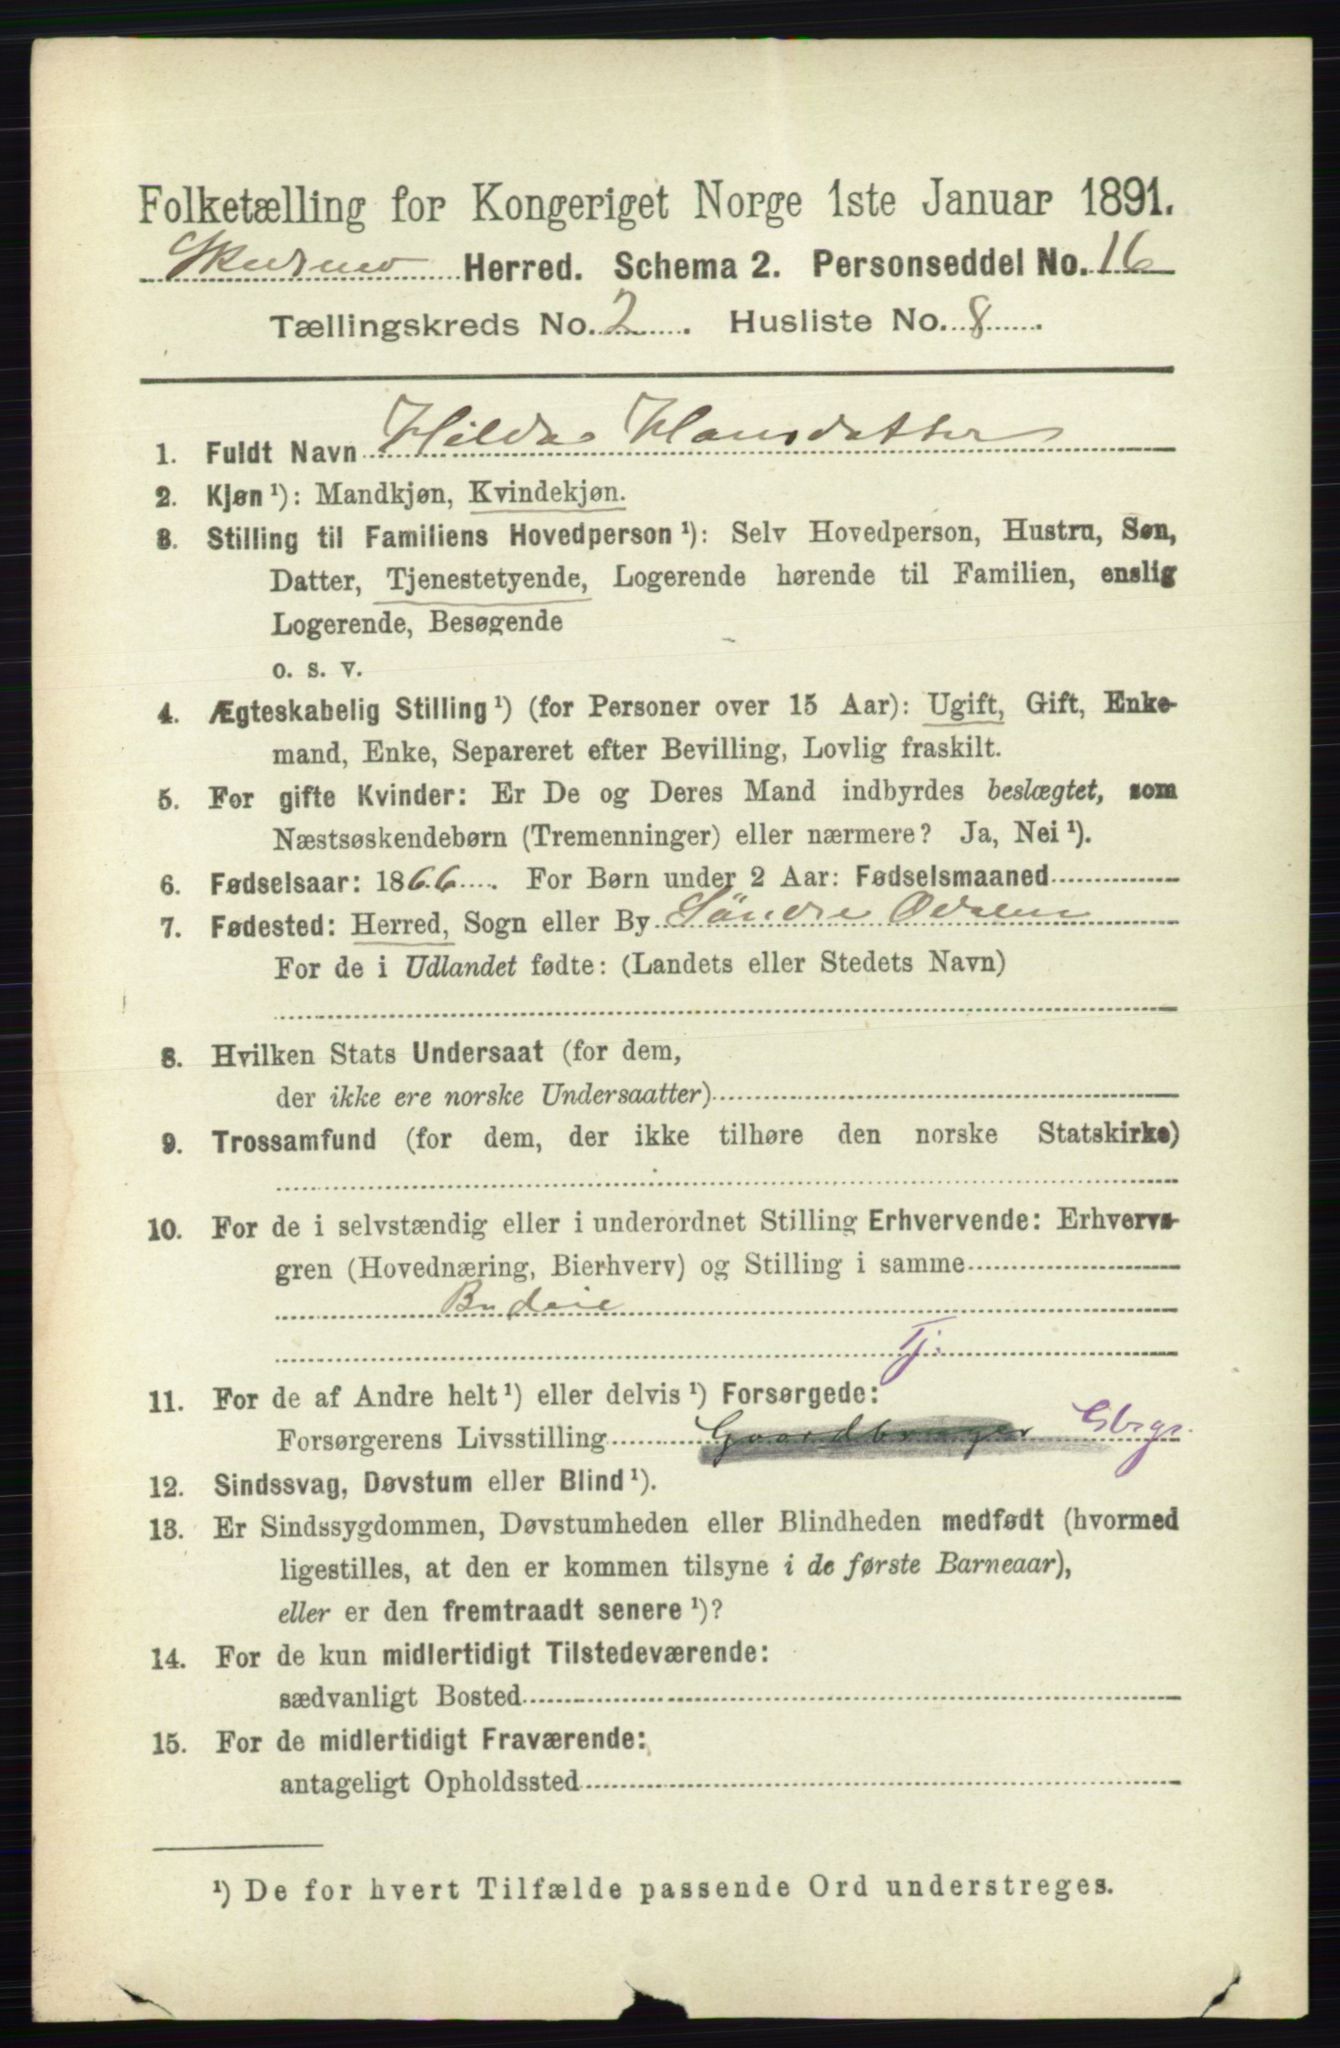 Folketælling for Kongeriget Norge 1ste Januar 1891.
Herred. Schema 2. Personseddel No. 16
Tællingskreds No. 2. Husliste No. 8.
1. Fuldt Navn Hilda Hansdatter
2. Kjøn ¹): Mandkjøn, Kvindekjøn.
3. Stilling til Familiens Hovedperson ¹): Selv Hovedperson, Hustru, Søn,
Datter, Tjenestetyende, Logerende hørende til Familien, enslig
Logerende, Besøgende
o. s. v.
4. Ægteskabelig Stilling ¹) (for Personer over 15 Aar): Ugift, Gift, Enke-
mand, Enke, Separeret efter Bevilling, Lovlig fraskilt.
5. For gifte Kvinder: Er De og Deres Mand indbyrdes beslægtet, som
Næstsøskendebørn (Tremenninger) eller nærmere? Ja, Nei ¹).
6. Fødselsaar: 1866. For Børn under 2 Aar: Fødselsmaaned
7. Fødested: Herred, Sogn eller By Söndre Odalen
For de i Udlandet fødte: (Landets eller Stedets Navn)
8. Hvilken Stats Undersaat (for dem,
der ikke ere norske Undersaatter)
9. Trossamfund (for dem, der ikke tilhøre den norske Statskirke)
10. For de i selvstændig eller i underordnet Stilling Erhvervende: Erhvervs-
gren (Hovednæring, Bierhverv) og Stilling i samme
Budeie
Tj.
11. For de af Andre helt ¹) eller delvis ¹) Forsørgede:
Forsørgerens Livsstilling Gaardbruger Gbrgr.
12. Sindssvag, Døvstum eller Blind ¹).
13. Er Sindssygdommen, Døvstumheden eller Blindheden medfødt (hvormed
ligestilles, at den er kommen tilsyne i de første Barneaar),
eller er den fremtraadt senere ¹)?
14. For de kun midlertidigt Tilstedeværende:
sædvanligt Bosted
15. For de midlertidigt Fraværende:
antageligt Opholdssted
¹) De for hvert Tilfælde passende Ord understreges.